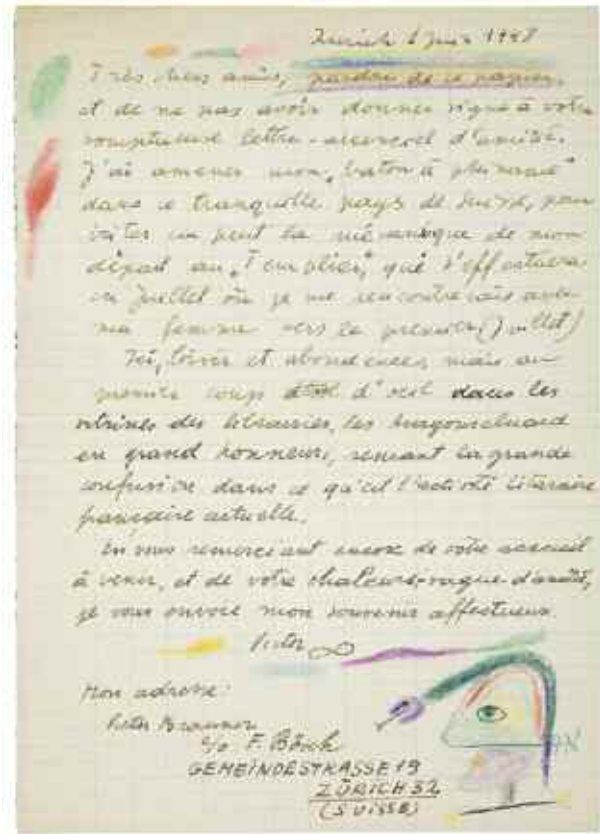 Zurich 6 juin 1948
Très chers amis, pardon de ce papier
et de ne pas avoir donner signe à votre
somptueuse lettre-accencoel d'amitié.
J'ai amener mon „baton à
dans ce tranquille pays de Suisse, pour
un peut la mécanique de mon
départ au „Templier", qui s'effectuera
en Juillet où je me rencontrerais avec
ma femme vers le premier (Juillet)
Ici, loisir et abondences, mais au
premier coup d'oeil dans les
vitrines des librairies, les
en grand honneur, semant la grande
confusion dans ce qu'est l'activité literaire
française actuelle.
En vous remerciant encore de votre acceuil
à venir, et de votre chaleur-vague d'amitié,
je vous envoie mon souvenir affectueux
Victor
Mon adresse:
Victor Brauner
c/o F. Bösch
GEMEINDESTRASSE 19
ZÜRICH 32
(SUISSE)